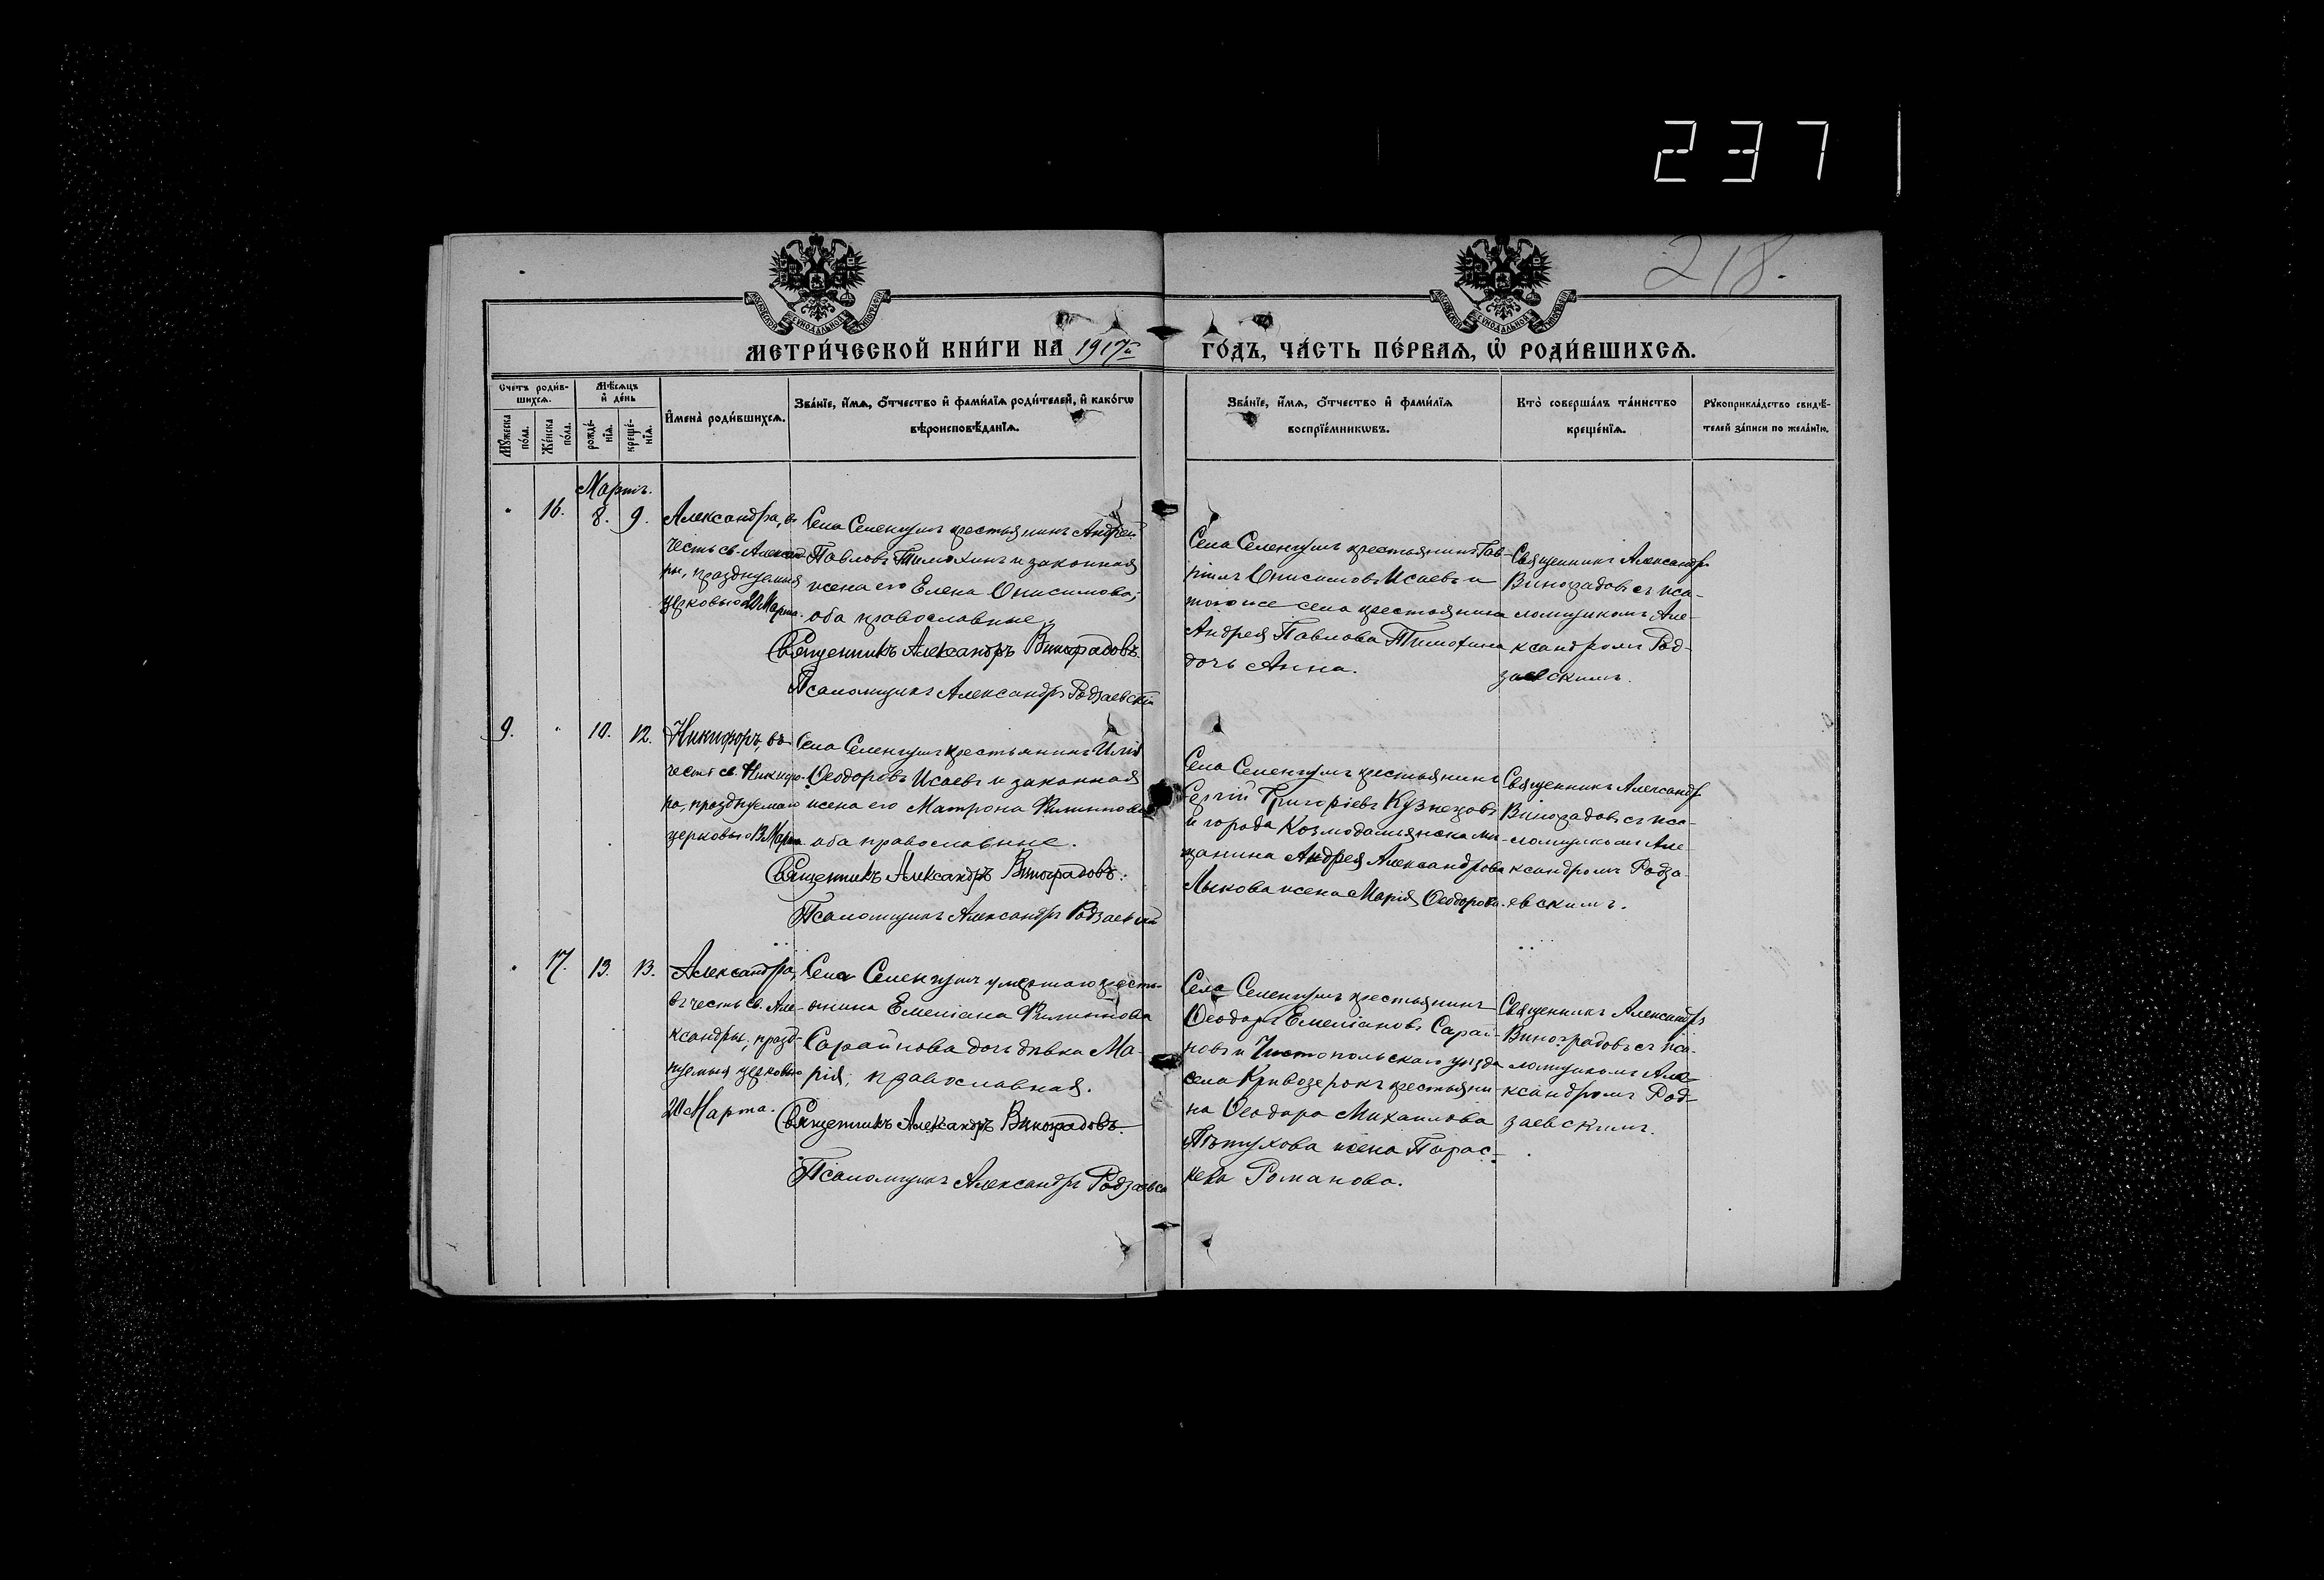 237
218.
МЕТРИ́ЧЕСКОЙ КНИ́ГИ НА 1917й ГО́ДЪ, ЧА́СТЬ ПЕ́РВАЯ, Ѿ РОДИ́ВШИХСЯ.
Сче́тъ роди́в-
шихся.
Мѣ́сяцъ
и҆ де́нь
Му́жеска
по́ла.
Же́нска
по́ла.
рожде́-
нїя.
креще́-
нїя.
И҆мена̀ роди́вшихся.
Зва́нїе, и҆́мя, ѻ҆́тчество и҆ фами́лїя роди́телей, и҆ како́гѡ
вѣроисповѣ́данїя.
Зва́нїе, и҆́мя, ѻ҆́тчество и҆ фами́лїя
воспрїе́мникѡвъ.
Кто̀ соверша́лъ та́инство
креще́нїя.
Рукоприкла́дство свидѣ́-
телей за́писи по жела́нїю.
Мартъ.
16. 8. 9.
Александра, въ
честь св. Алексан-
ры, празднуемыя
церковью 20 Марта.
Села Селенгушъ крестьянинъ Андрей
Павловъ Тимохинъ и законная
жена его Елена Онисимова;
оба православные.
Священникъ Александръ Виноградовъ.
Псаломщикъ Александръ Родзаевскій
Села Селенгушъ крестьянинъ Гав-
ріилъ Онисимовъ Исаевъ и
тогоже села крестьянина
Андрея Павлова Тимохина
дочь Анна.
Священникъ Александръ
Виноградовъ съ пса-
ломщикомъ Але-
ксандромъ Род-
заевскимъ.
9. 10. 12.
Никифоръ, въ
честь св. Никифо-
ра, празднуемаго
церковью 13 Марта
Села Селенгушъ крестьянинъ Илія
Ѳеодоровъ Исаевъ и законная
жена его Матрона Филиппова
оба православные.
Священникъ Александръ Виноградовъ.
Псаломщикъ Александръ Родзаевскій
Села Селенгушъ крестьянинъ
Сергій Григоріевъ Кузнецовъ
и города Козмодамьянска мѣ-
щанина Андрея Александрова
Лыкова жена Марія Ѳеодорова.
Священникъ Александръ
Виноградовъ съ пса-
ломщикомъ Але-
ксандромъ Родза-
евскимъ.
17. 13. 13.
Александра,
въ честь св. Але-
ксандры, празд-
нуемыя церковью
20 Марта.
Села Селенгушъ умершаго кресть-
янина Емеліана Филиппова
Сарайнова дочь дѣвка Ма-
рія; православная.
Священникъ Александръ Виноградовъ.
Псаломщикъ Александръ Родзаевск
Села Селенгушъ крестьянинъ
Ѳеодоръ Емеліановъ Сарай-
новъ и Чистопольскаго уѣзда
села Кривозерокъ крестьяни-
на Ѳеодора Михаилова
Пѣтухова жена Парас-
кева Романова.
Священникъ Александръ
Виноградовъ съ пса-
ломщикомъ Але-
ксандромъ Род-
заевскимъ.